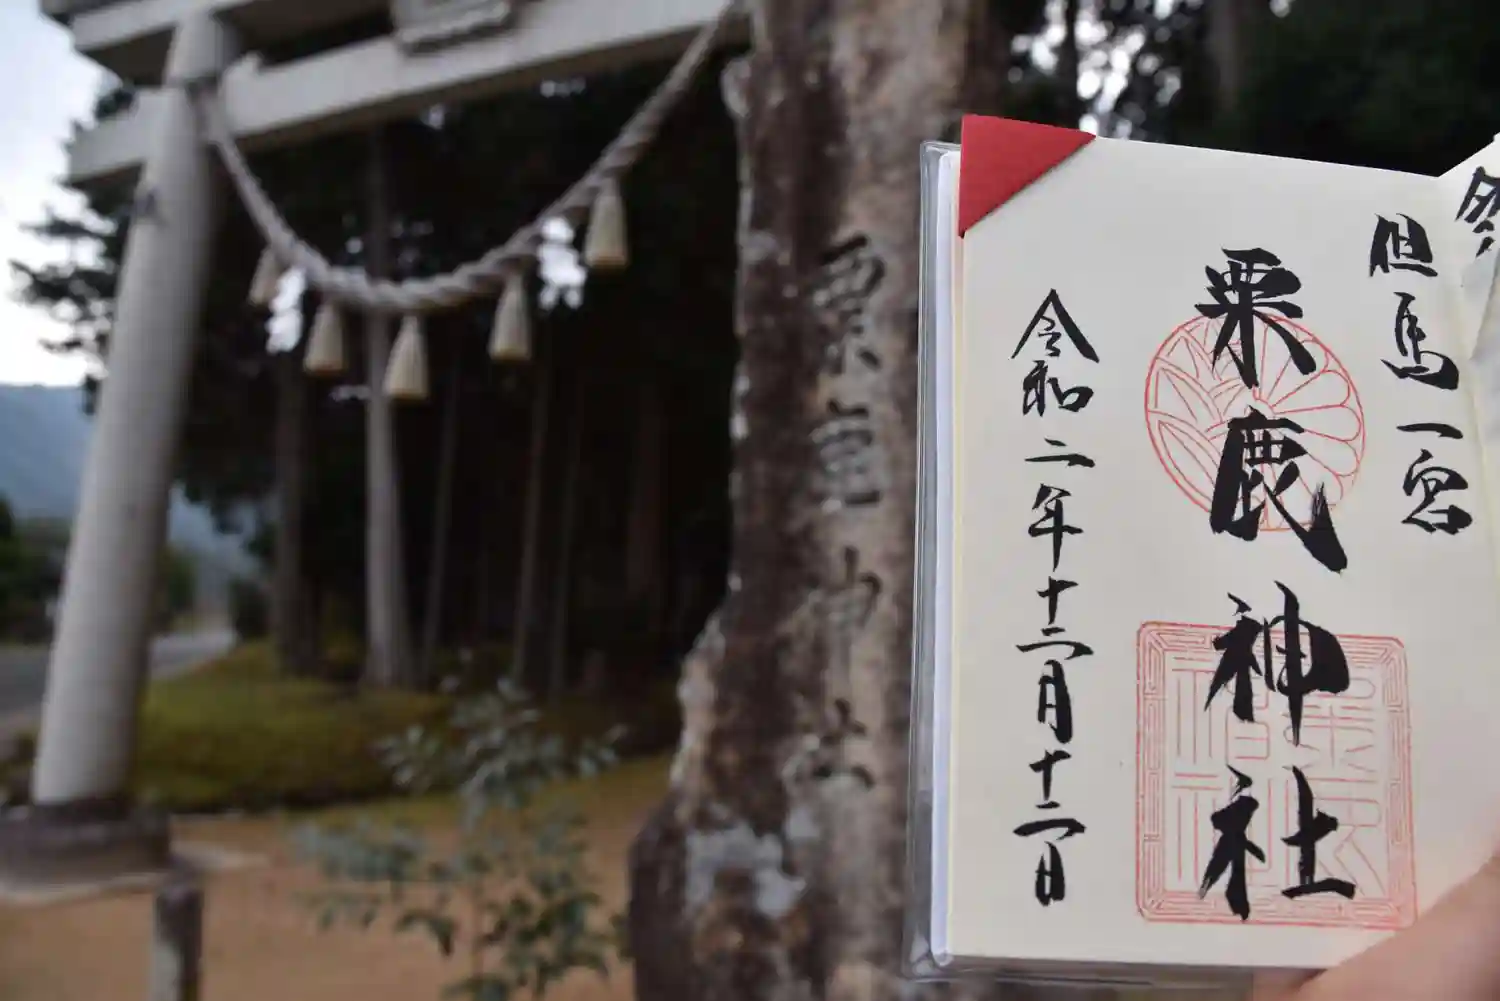 但馬一宮
粟鹿神社
令和二年十二月十二日
粟鹿神社